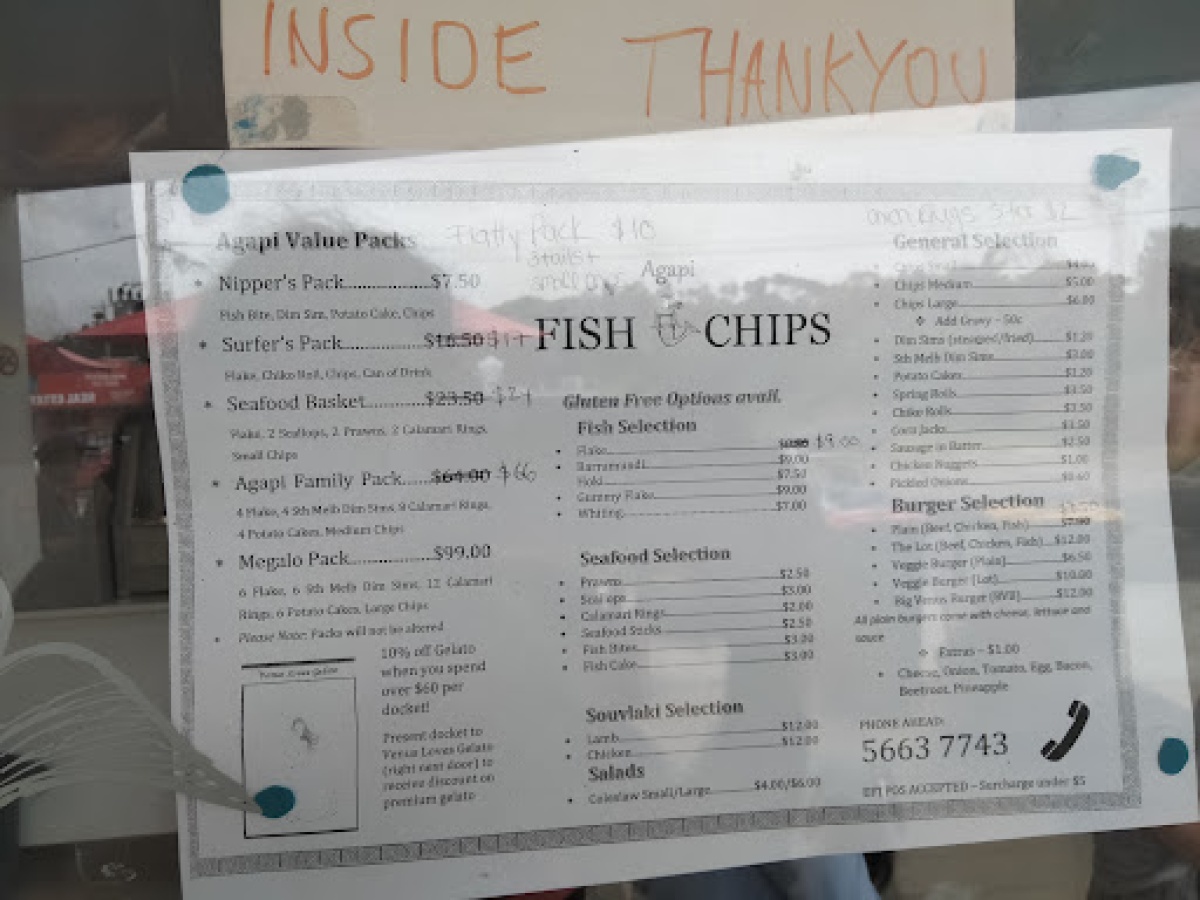 INSIDE THANKYOU
Agapi Value Packs
Flatty Pack $10
3 tails +
small chips
Nipper's Pack..................$7.50
Fish Bite, Dim Sim, Potato Cake, Chips
Surfer's Pack.................$16.50
Flake, Chiko Roll, Chips, Can of Drink
Seafood Basket............$23.50
Flake, 2 Scallops, 2 Prawns, 2 Calamari Rings,
Small Chips
Agapi Family Pack.....$64.00 $66
4 Flake, 4 Sth Melb Dim Sims, 8 Calamari Rings,
4 Potato Cakes, Medium Chips
Megalo Pack.................$99.00
6 Flake, 6 Sth Melb Dim Sims, 12 Calamari
Rings, 6 Potato Cakes, Large Chips
Please Note: Packs will not be altered
10% off Gelato
when you spend
over $60 per
docket!
Present docket to
Venus Loves Gelato
(right next door) to
receive discount on
premium gelato
Agapi
FISH CHIPS
Gluten Free Options avail.
Fish Selection
Flake $9.00
Barramundi $9.00
Hoki $7.50
Gummy Flake $9.00
Whiting $7.00
Seafood Selection
Prawns $2.50
Scallops $3.00
Calamari Rings $2.00
Seafood Sticks $2.50
Fish Bites $3.00
Fish Cake $3.00
Souvlaki Selection
Lamb $12.00
Chicken $12.00
Salads
Coleslaw Small/Large $4.00/$6.00
Rings 3 for $2
General Selection
Chips Medium $5.00
Chips Large $6.00
Add Gravy - 50c
Dim Sims (steamed/fried) $1.20
Sth Melb Dim Sims $3.00
Potato Cakes $1.20
Spring Rolls $3.50
Chiko Rolls $3.50
Corn Jacks $3.50
Sausage in Batter $2.50
Chicken Nuggets $1.00
Pickled Onions $0.60
Burger Selection
Plain (Beef, Chicken, Fish)
The Lot (Beef, Chicken, Fish) $12.00
Veggie Burger (Plain) $6.50
Veggie Burger (Lot) $10.00
Big Venus Burger (BVB) $12.00
All plain burgers come with cheese, lettuce and
sauce
Extras - $1.00
Cheese, Onion, Tomato, Egg, Bacon,
Beetroot, Pineapple
PHONE AHEAD:
5663 7743
EFT POS ACCEPTED - Surcharge under $5